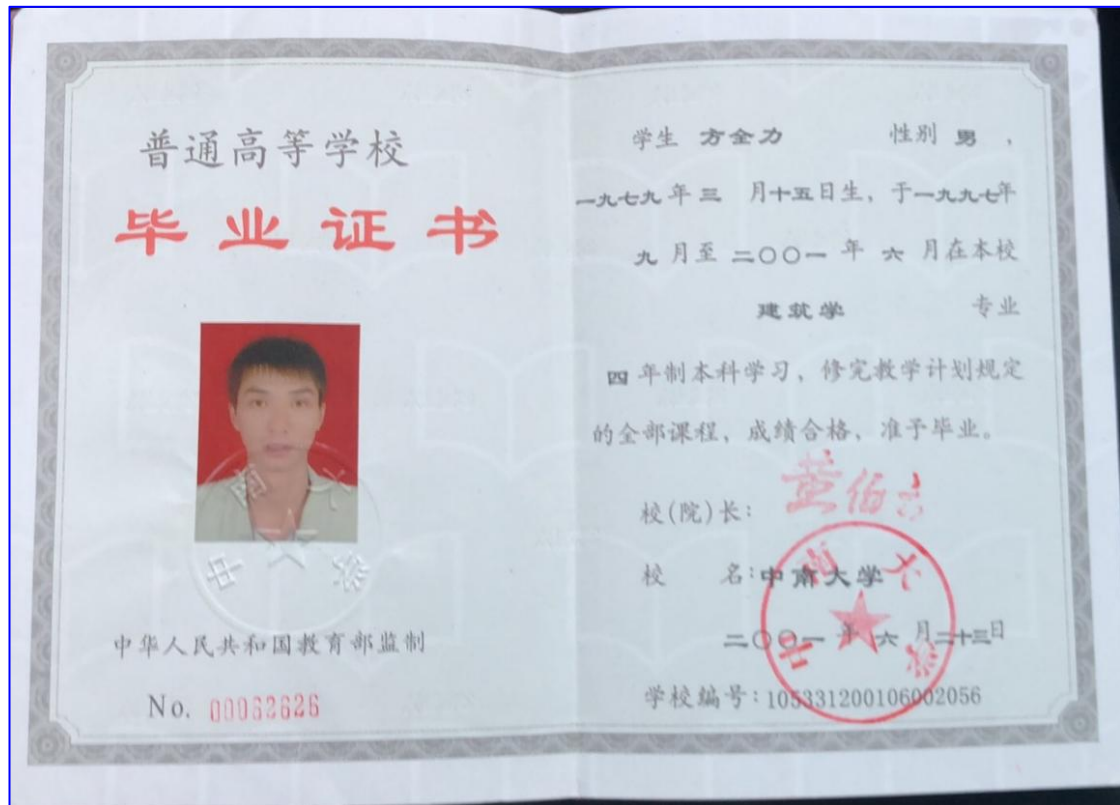 普通高等学校
毕业证书
中南大学
中华人民共和国教育部监制
No. 00062626
学生 方全力 性别 男 ,
一九七九年 三 月十五日生, 于一九九七年
九 月至 二〇〇一 年 六 月在本校
建筑学 专业
四 年制本科学习、修完教学计划规定
的全部课程、成绩合格、准予毕业。
校(院)长: 黄伯云
校 名:中南大学
中南大学
二〇〇一 年 六 月二十三日
学校编号:105331200106002056